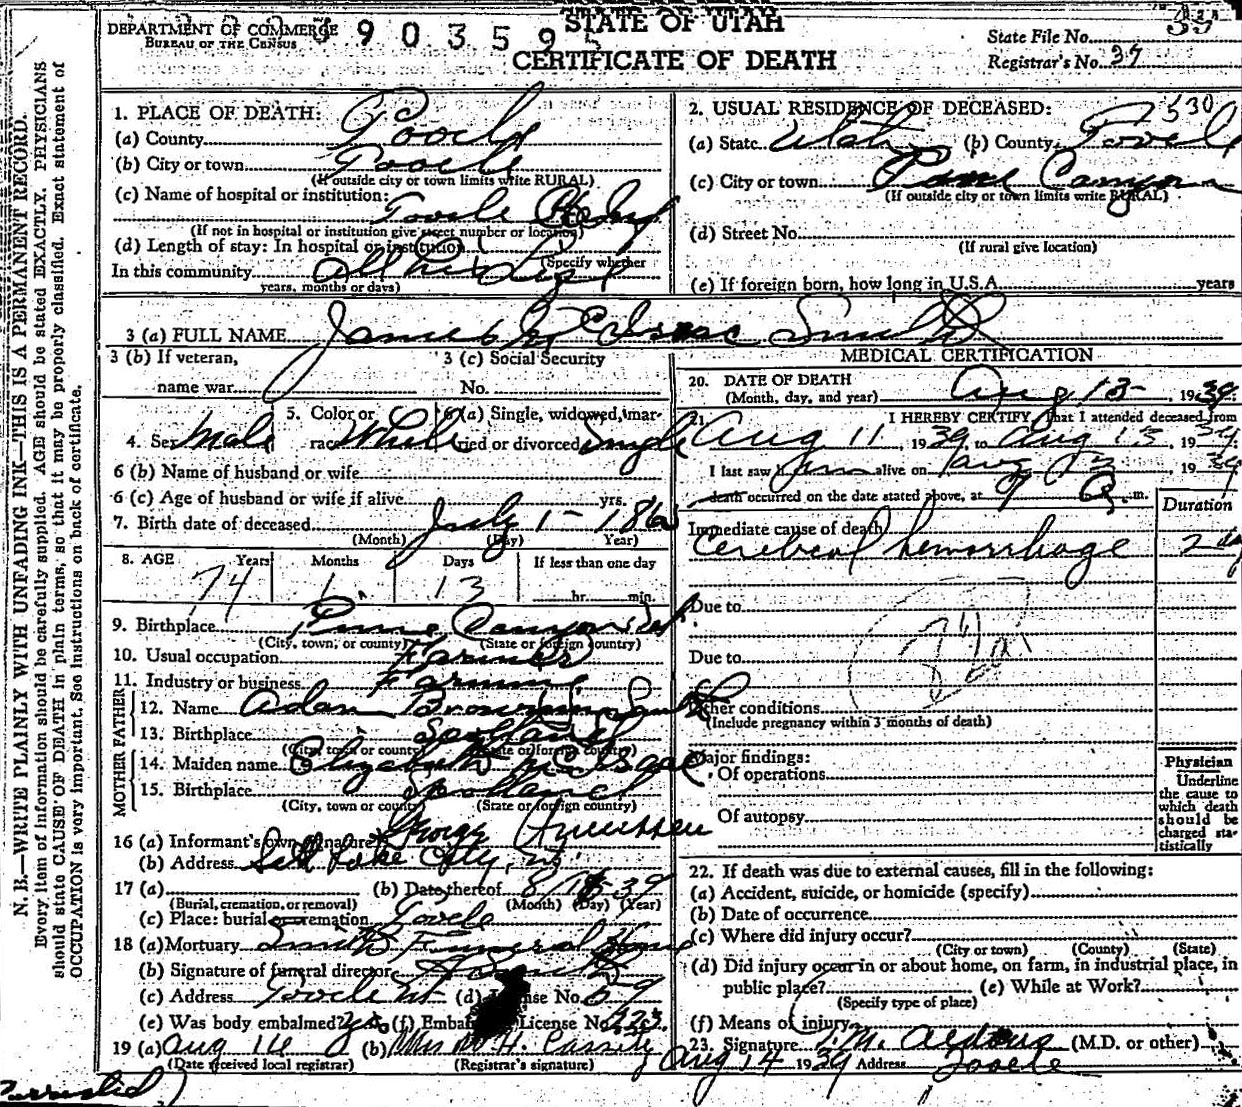 DEPARTMENT OF COMMERCE
BUREAU OF THE CENSUS
390359
STATE OF UTAH
CERTIFICATE OF DEATH
State File No.
Registrar's No. 37
N. B.—WRITE PLAINLY WITH UNFADING INK—THIS IS A PERMANENT RECORD.
Every item of information should be carefully supplied. AGE should be stated EXACTLY. PHYSICIANS
should state CAUSE OF DEATH in plain terms, so that it may be properly classified. Exact statement of
OCCUPATION is very important. See instructions on back of certificate.
1. PLACE OF DEATH:
(a) County Tooele
(b) City or town Tooele
(If outside city or town limits write RURAL)
(c) Name of hospital or institution:
Tooele
(If not in hospital or institution give street number or location)
(d) Length of stay: In hospital or institution
(Specify whether
In this community All his life
years, months or days)
2. USUAL RESIDENCE OF DECEASED: 7530
(a) State Utah (b) County Tooele
(c) City or town Pine Canyon
(If outside city or town limits write RURAL)
(d) Street No.
(If rural give location)
(e) If foreign born, how long in U.S.A. years
3 (a) FULL NAME James Mc Isaac Smith
3 (b) If veteran,
name war
3 (c) Social Security
No.
4. Sex Male 5. Color or race White 6 (a) Single, widowed, married or divorced Single
6 (b) Name of husband or wife
6 (c) Age of husband or wife if alive yrs.
7. Birth date of deceased July 1 - 186
(Month) (Day) Year)
8. AGE Years Months Days If less than one day
74 1 13 hr. min.
9. Birthplace Pine Canyon
(City, town, or county) (State or foreign country)
10. Usual occupation Farmer
11. Industry or business Farming
FATHER
12. Name Adam Browning Smith
13. Birthplace Scotland
(City, town or county) (State or foreign country)
MOTHER
14. Maiden name Elizabeth McIsaac
15. Birthplace Scotland
(City, town or county) (State or foreign country)
16 (a) Informant's own signature George
(b) Address Salt Lake City, Ut
17 (a) (b) Date thereof 8/15-39
(Burial, cremation, or removal) (Month) (Day) (Year)
(c) Place: burial cremation Tooele
18 (a) Mortuary Smith Funeral Home
(b) Signature of funeral director Smith
(c) Address Tooele Ut (d) License No. 59
(e) Was body embalmed? yes (f) Embalmer's License No. 223
19 (a) Aug 14 (b) Mrs M. H. Cassity
(Date received local registrar) (Registrar's signature)
MEDICAL CERTIFICATION
20. DATE OF DEATH
(Month, day, and year) Aug 13- , 1939
21. I HEREBY CERTIFY, That I attended deceased from
Aug 11, 1939 to Aug 13, 1939
I last saw him alive on Aug 13, 1939
death occurred on the date stated above, at 9 a. m.
Duration
Immediate cause of death
Cerebral hemorrhage 2 day
Due to
Due to
Other conditions
(Include pregnancy within 3 months of death)
Major findings:
Of operations
Of autopsy
Physician
Underline
the cause to
which death
should be
charged sta-
tistically
22. If death was due to external causes, fill in the following:
(a) Accident, suicide, or homicide (specify)
(b) Date of occurrence
(c) Where did injury occur?
(City or town) (County) (State)
(d) Did injury occur in or about home, on farm, in industrial place, in
public place? (e) While at Work?
(Specify type of place)
(f) Means of injury
23. Signature J. M. Aldous (M.D. or other)
Aug 14 1939 Address Tooele